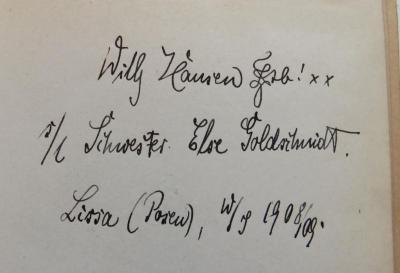 Willy Hansen Xxx! xx
s/l Schwester Else Goldschmidt.
Lissa (Posen), W/S 1908/09.